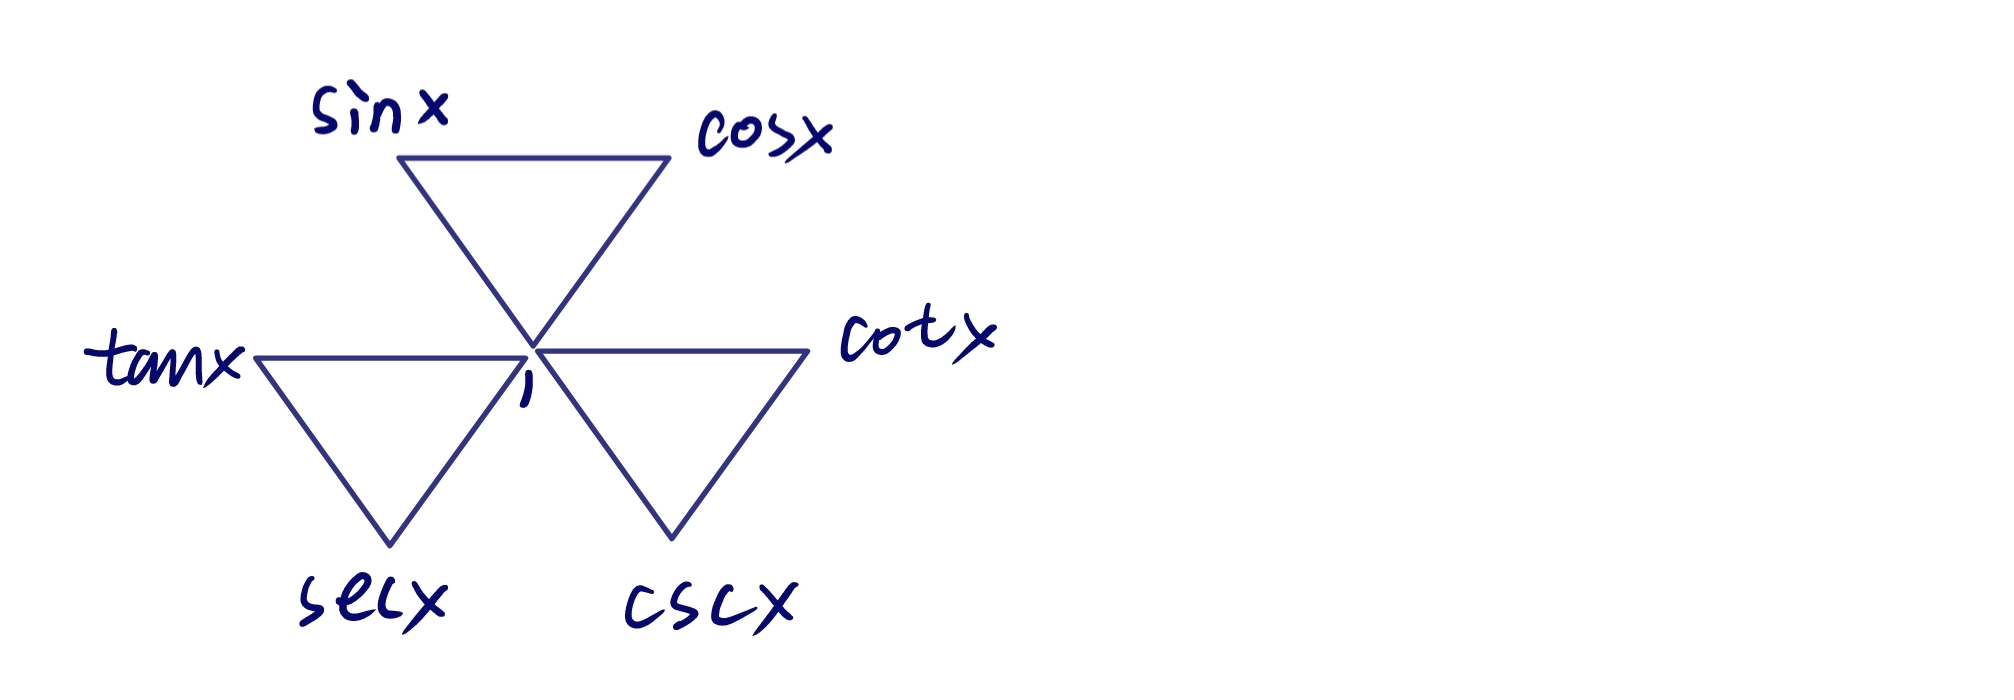 sinx
cosx
tanx
1
cotx
secx
cscx